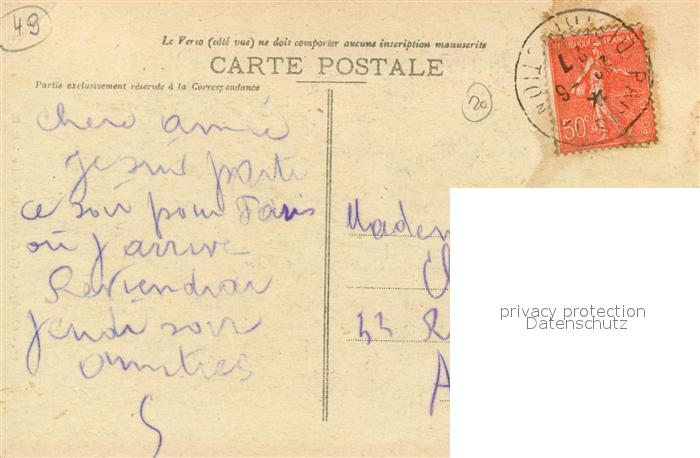 49
Le Verso (côté vue) ne doit comporter aucune inscription manuscrite
CARTE POSTALE
Partie exclusivement réservée à la Correspondance
20
REPUBLIQUE FRANÇAISE
50c
POSTES
chère amie
Je suis parti
ce soir pour Paris
où j'arrive
Reviendrai
jeudi soir
Amitiés
S
privacy protection
Datenschutz